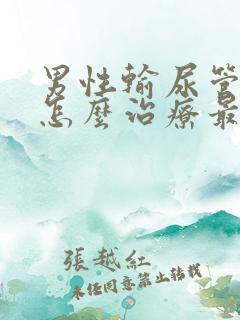 男性輸尿管
怎麼治療最
張越紅
未經同意禁止轉載